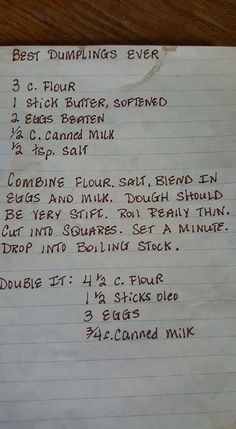 BEST DUMPLINGS EVER
3 C. FLOUR
1 STICK BUTTER, SOFTENED
2 EGGS BEATEN
½ C. CANNED MILK
½ tsp. SALT
COMBINE FLOUR. SALT, BLEND IN
EGGS AND MILK. DOUGH SHOULD
BE VERY STIFF. ROLL REALLY THIN.
CUT INTO SQUARES. SET A MINUTE.
DROP INTO BOILING STOCK.
DOUBLE IT: 4 ½ C. FLOUR
1 ½ STICKS OLEO
3 EGGS
¾ C. CANNED MILK